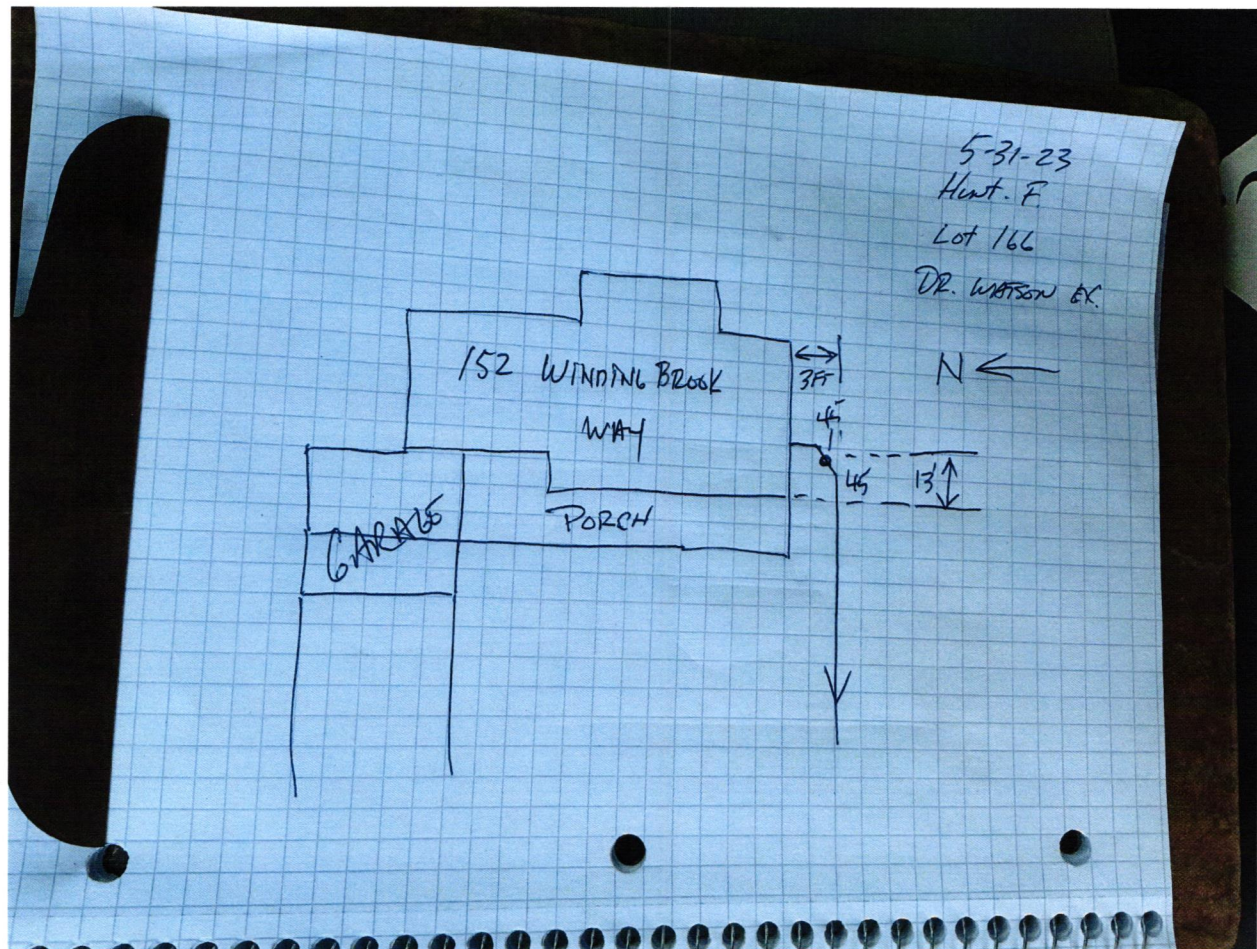 5-31-23
Hunt. F.
Lot 166
DR. WATSON EX.
152 WINDING BROOK
WAY
3FT
N
45
45
13'
PORCH
GARAGE